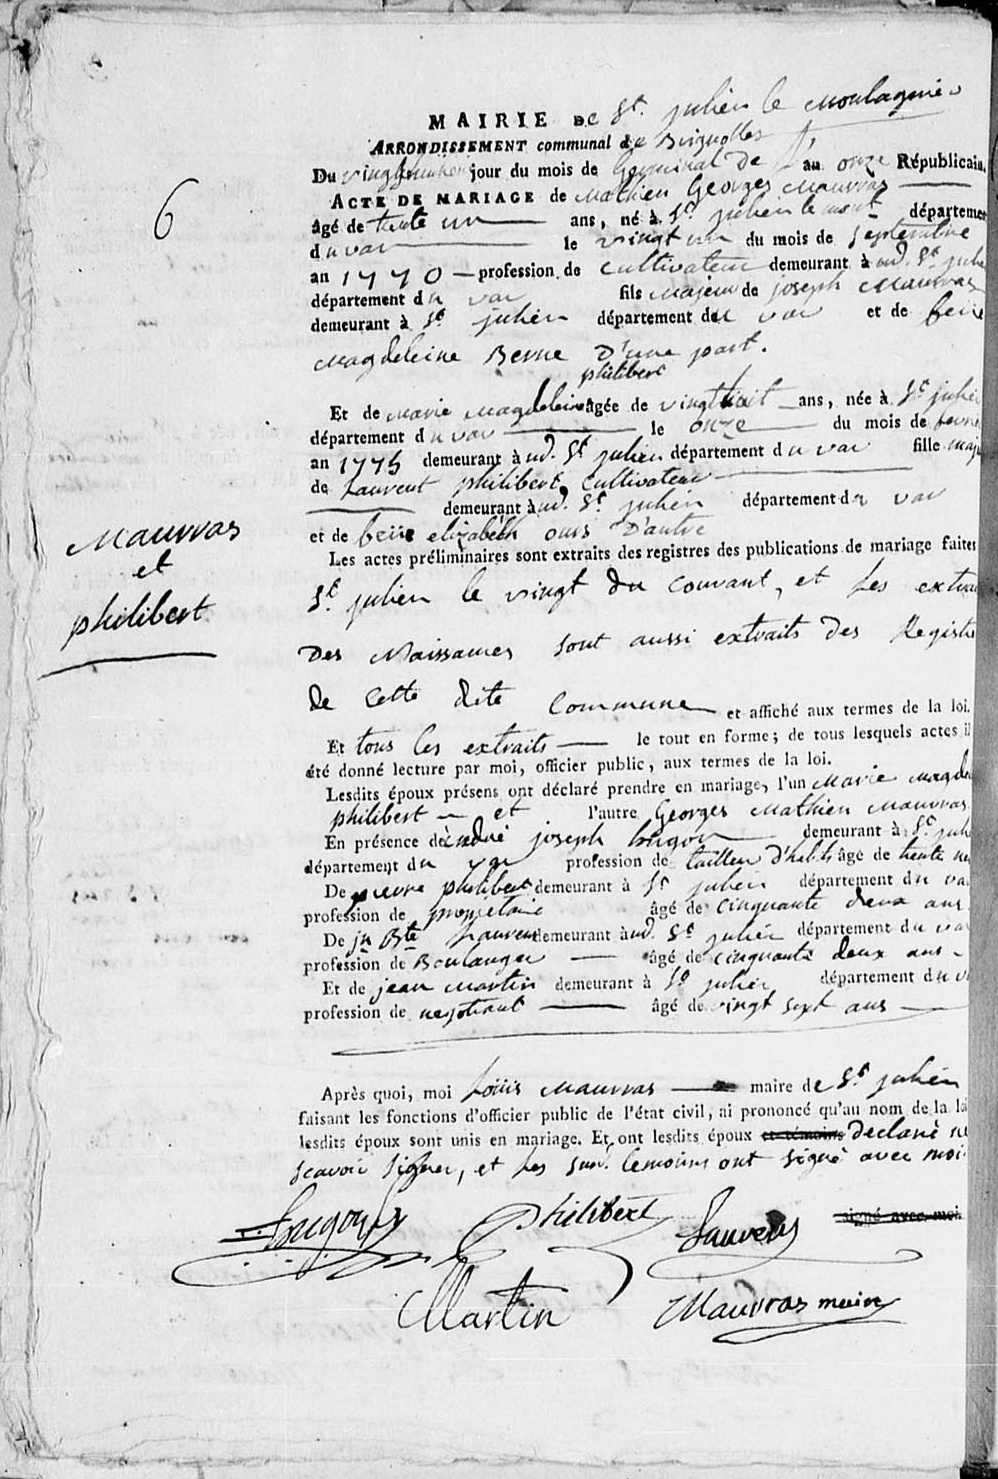 MAIRIE De St. julien le Montagnier
ARRONDISSEMENT communal de Brignolles
Du jour du mois de Germinal De l'an onze Républicain.
6
ACTE DE MARIAGE de Mathieu Georges Mauvras
âgé de trente un ans, né à St julien le mont département
du var le vingt un du mois de septembre
an 1770 profession de Cultivateur demeurant à ud. St julien
département du var fils Majeur de joseph Mauvras
demeurant à St julien département du var et de feue
Magdeleine Berne D'une part.
philibert
Et de Marie Magdeleine âgée de vingt huit ans, née à St julien
département du var le onze du mois de fevrier
an 1775 demeurant à ud. St julien département du var fille maj
de Laurent philibert Cultivateur
demeurant à ud. St julien département du var
et de feue elizabeth D'autre
Mauvras
et
philibert
Les actes préliminaires sont extraits des registres des publications de mariage faites
St julien le vingt du Courant, et les extraits
Des Naissances sont aussi extraits des Registre
de Cette dite Commune et affiché aux termes de la loi.
Et tous les extraits le tout en forme; de tous lesquels actes il
été donné lecture par moi, officier public, aux termes de la loi.
Lesdits époux présens ont déclaré prendre en mariage, l'un Marie magdel
philibert et l'autre Georges Mathieu Mauvras
En présence de joseph demeurant à St julie
département du var profession de tailleur D'habits âgé de trente
De pierre philibert demeurant à St julien département du var
profession de propriétaire âgé de cinquante deux ans
De jn Bte Sauvens demeurant à ud. St julien département du var
profession de Boulanger âgé de cinquante deux ans
Et de jean Martin demeurant à St julien département du v
profession de negotiant âgé de vingt sept ans
Après quoi, moi Louis Mauvras maire de St julien
faisant les fonctions d'officier public de l'état civil, ai prononcé qu'au nom de la loi
lesdits époux sont unis en mariage. Et ont lesdits époux et témoins declaré ne
scavoir signer, et les susd. temoins ont signé avec moi
signé avec moi.
Philibert Sauvens
Martin Mauvras maire